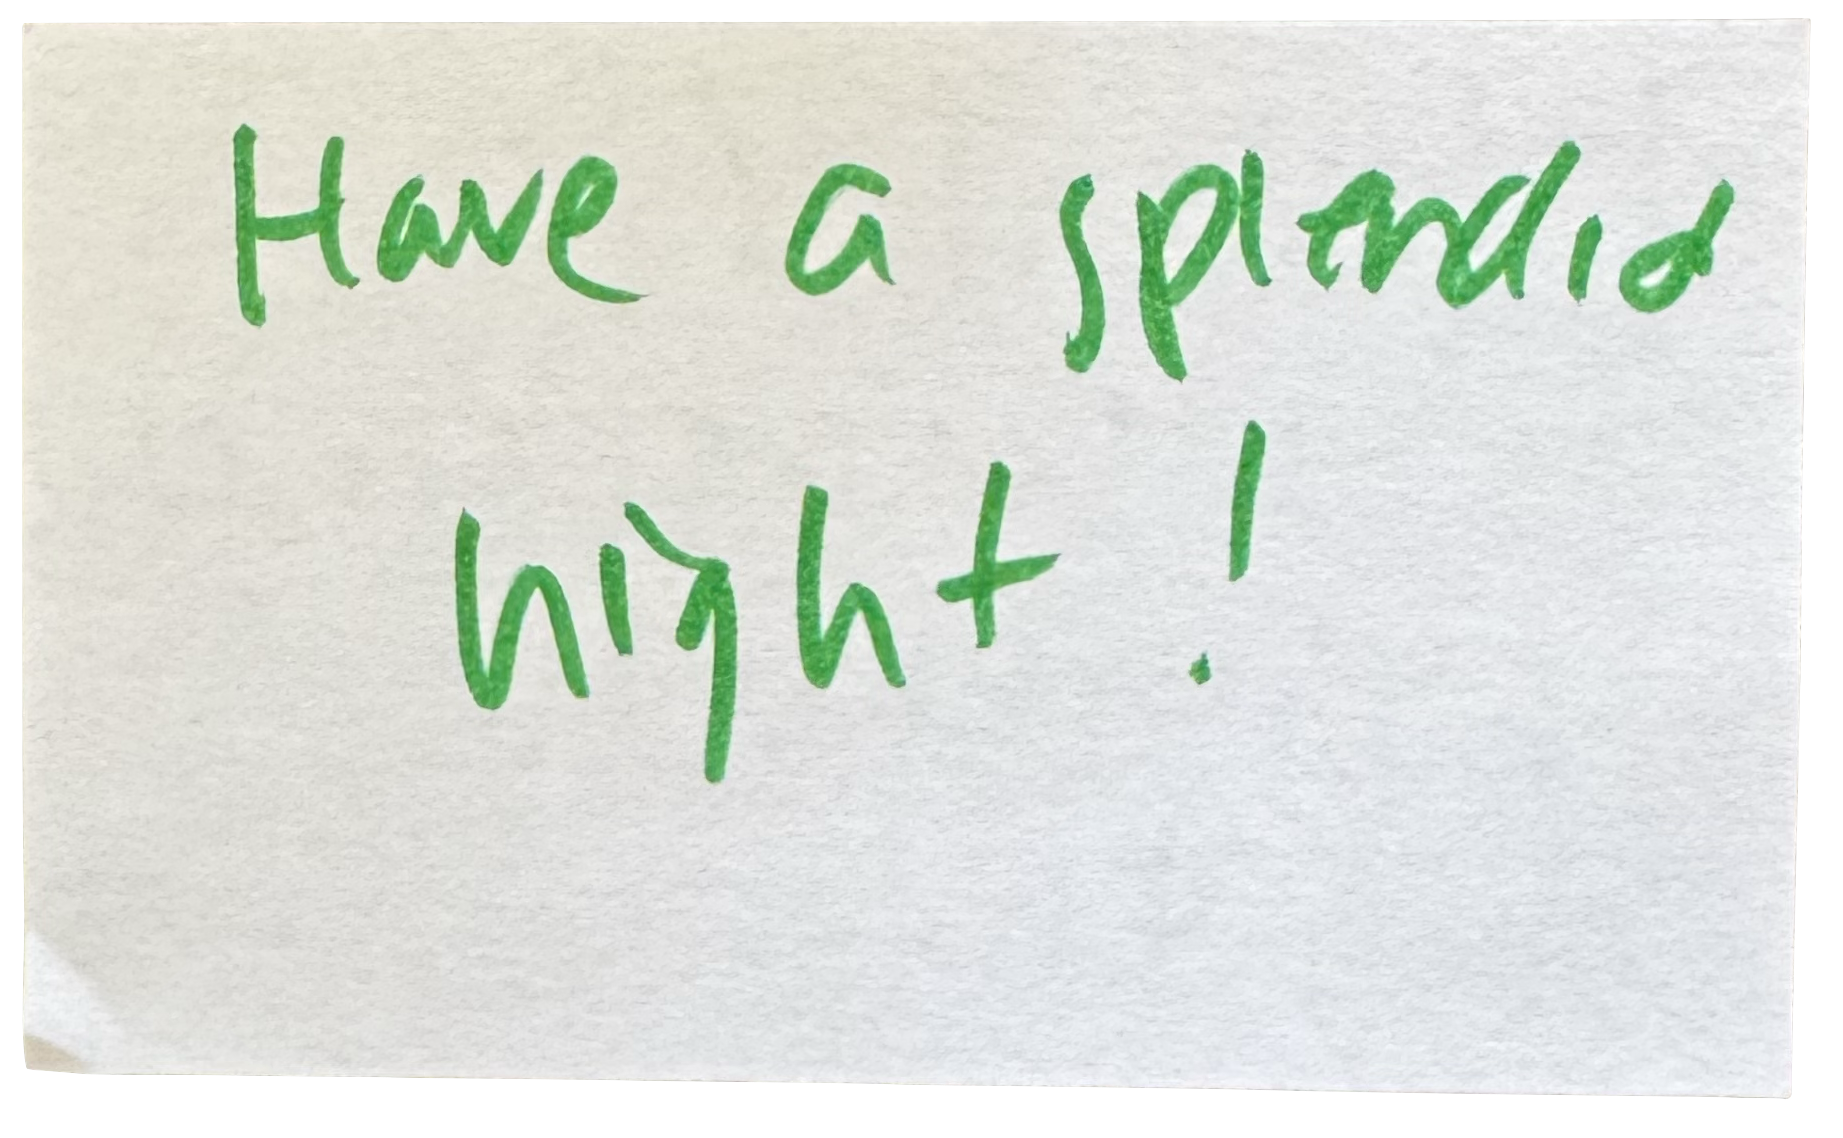 Have a splendid
night!